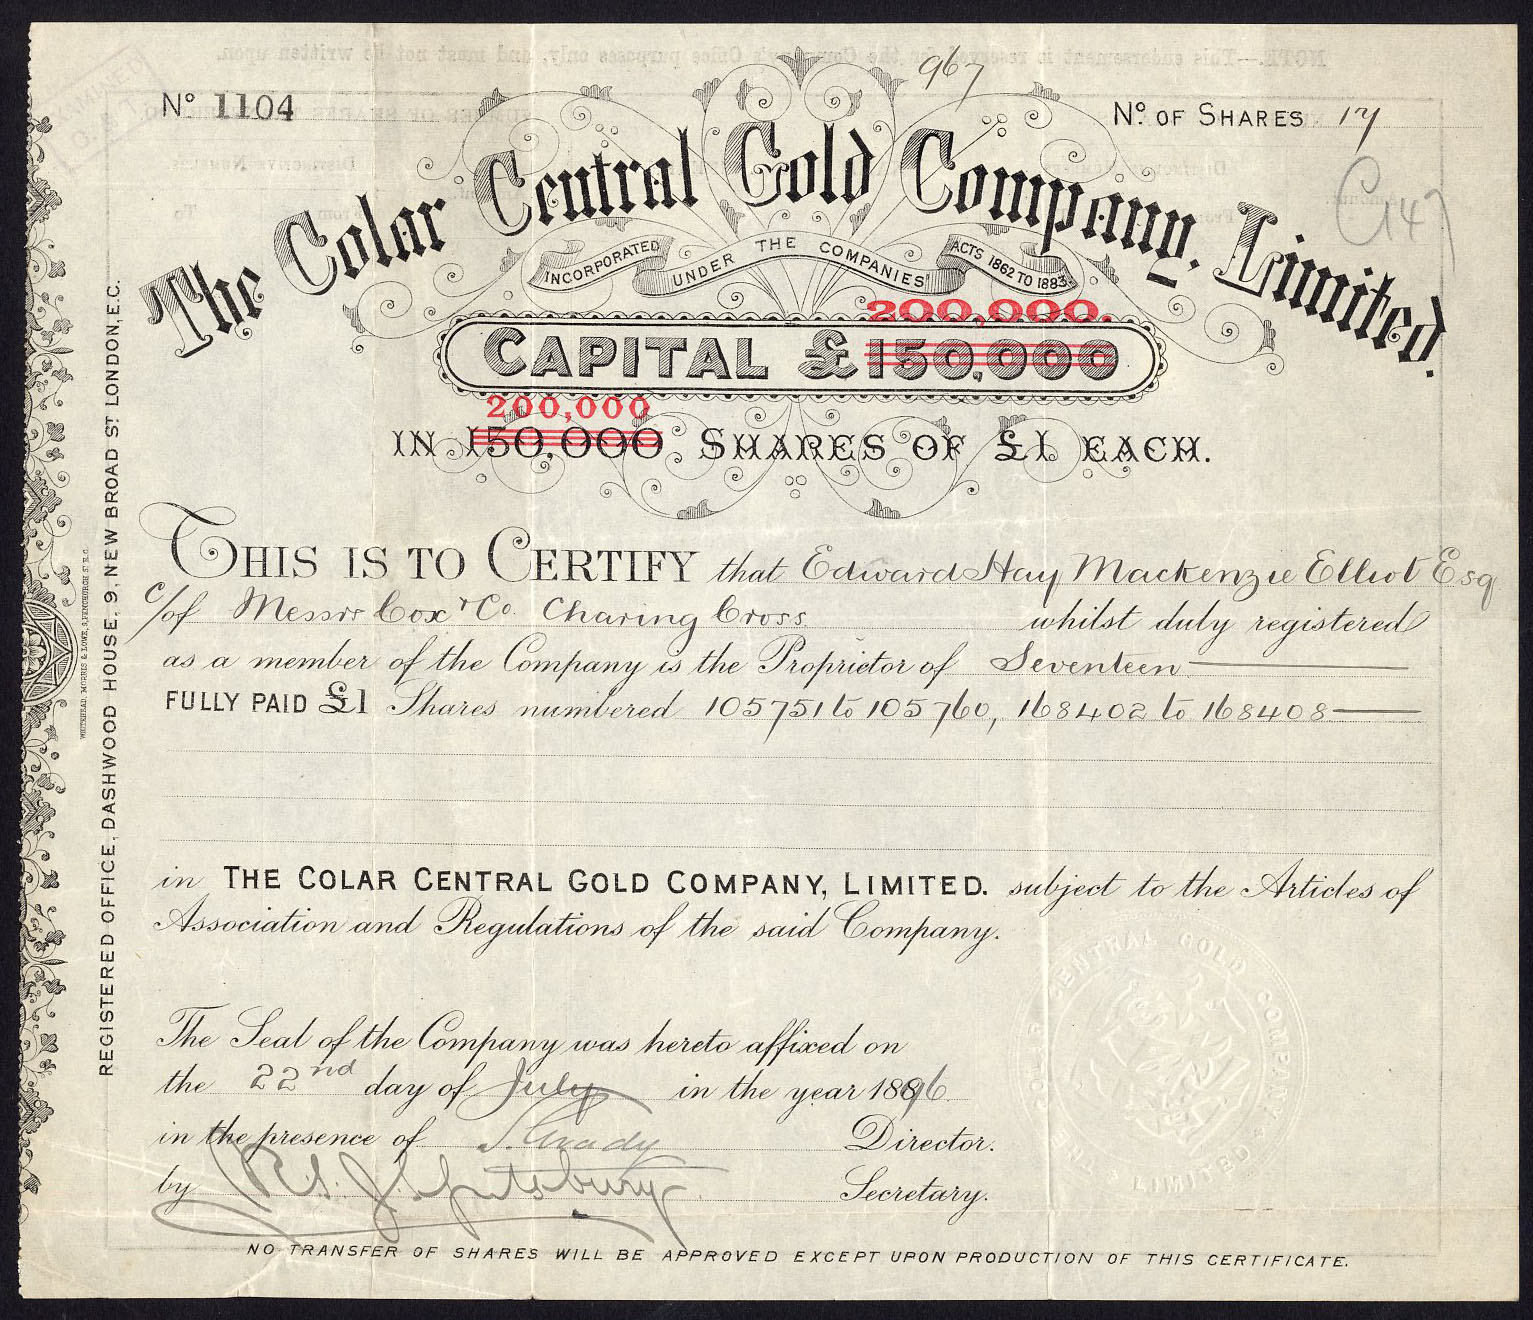 967
Nº 1104
Nº OF SHARES 17
C147
The Colar Central Gold Company, Limited.
INCORPORATED UNDER THE COMPANIES ACTS 1862 TO 1883.
200,000.
CAPITAL £150,000
200,000
IN 150,000 SHARES OF £1 EACH.
THIS IS TO CERTIFY that Edward Hay Mackenzie Elliot Esq
c/of Messrs Cox & Co. Charing Cross whilst duly registered
as a member of the Company is the Proprietor of Seventeen
FULLY PAID £1 Shares numbered 105751 to 105760, 168402 to 168408
in THE COLAR CENTRAL GOLD COMPANY, LIMITED. subject to the Articles of
Association and Regulations of the said Company.
The Seal of the Company was hereto affixed on
the 22nd day of July in the year 1896
in the presence of Director.
by Secretary.
THE COLAR CENTRAL GOLD COMPANY LIMITED
NO TRANSFER OF SHARES WILL BE APPROVED EXCEPT UPON PRODUCTION OF THIS CERTIFICATE.
REGISTERED OFFICE, DASHWOOD HOUSE, 9, NEW BROAD ST LONDON, E.C.
WHITEHEAD, MORRIS & LOWE, 9, FENCHURCH ST. E.C.